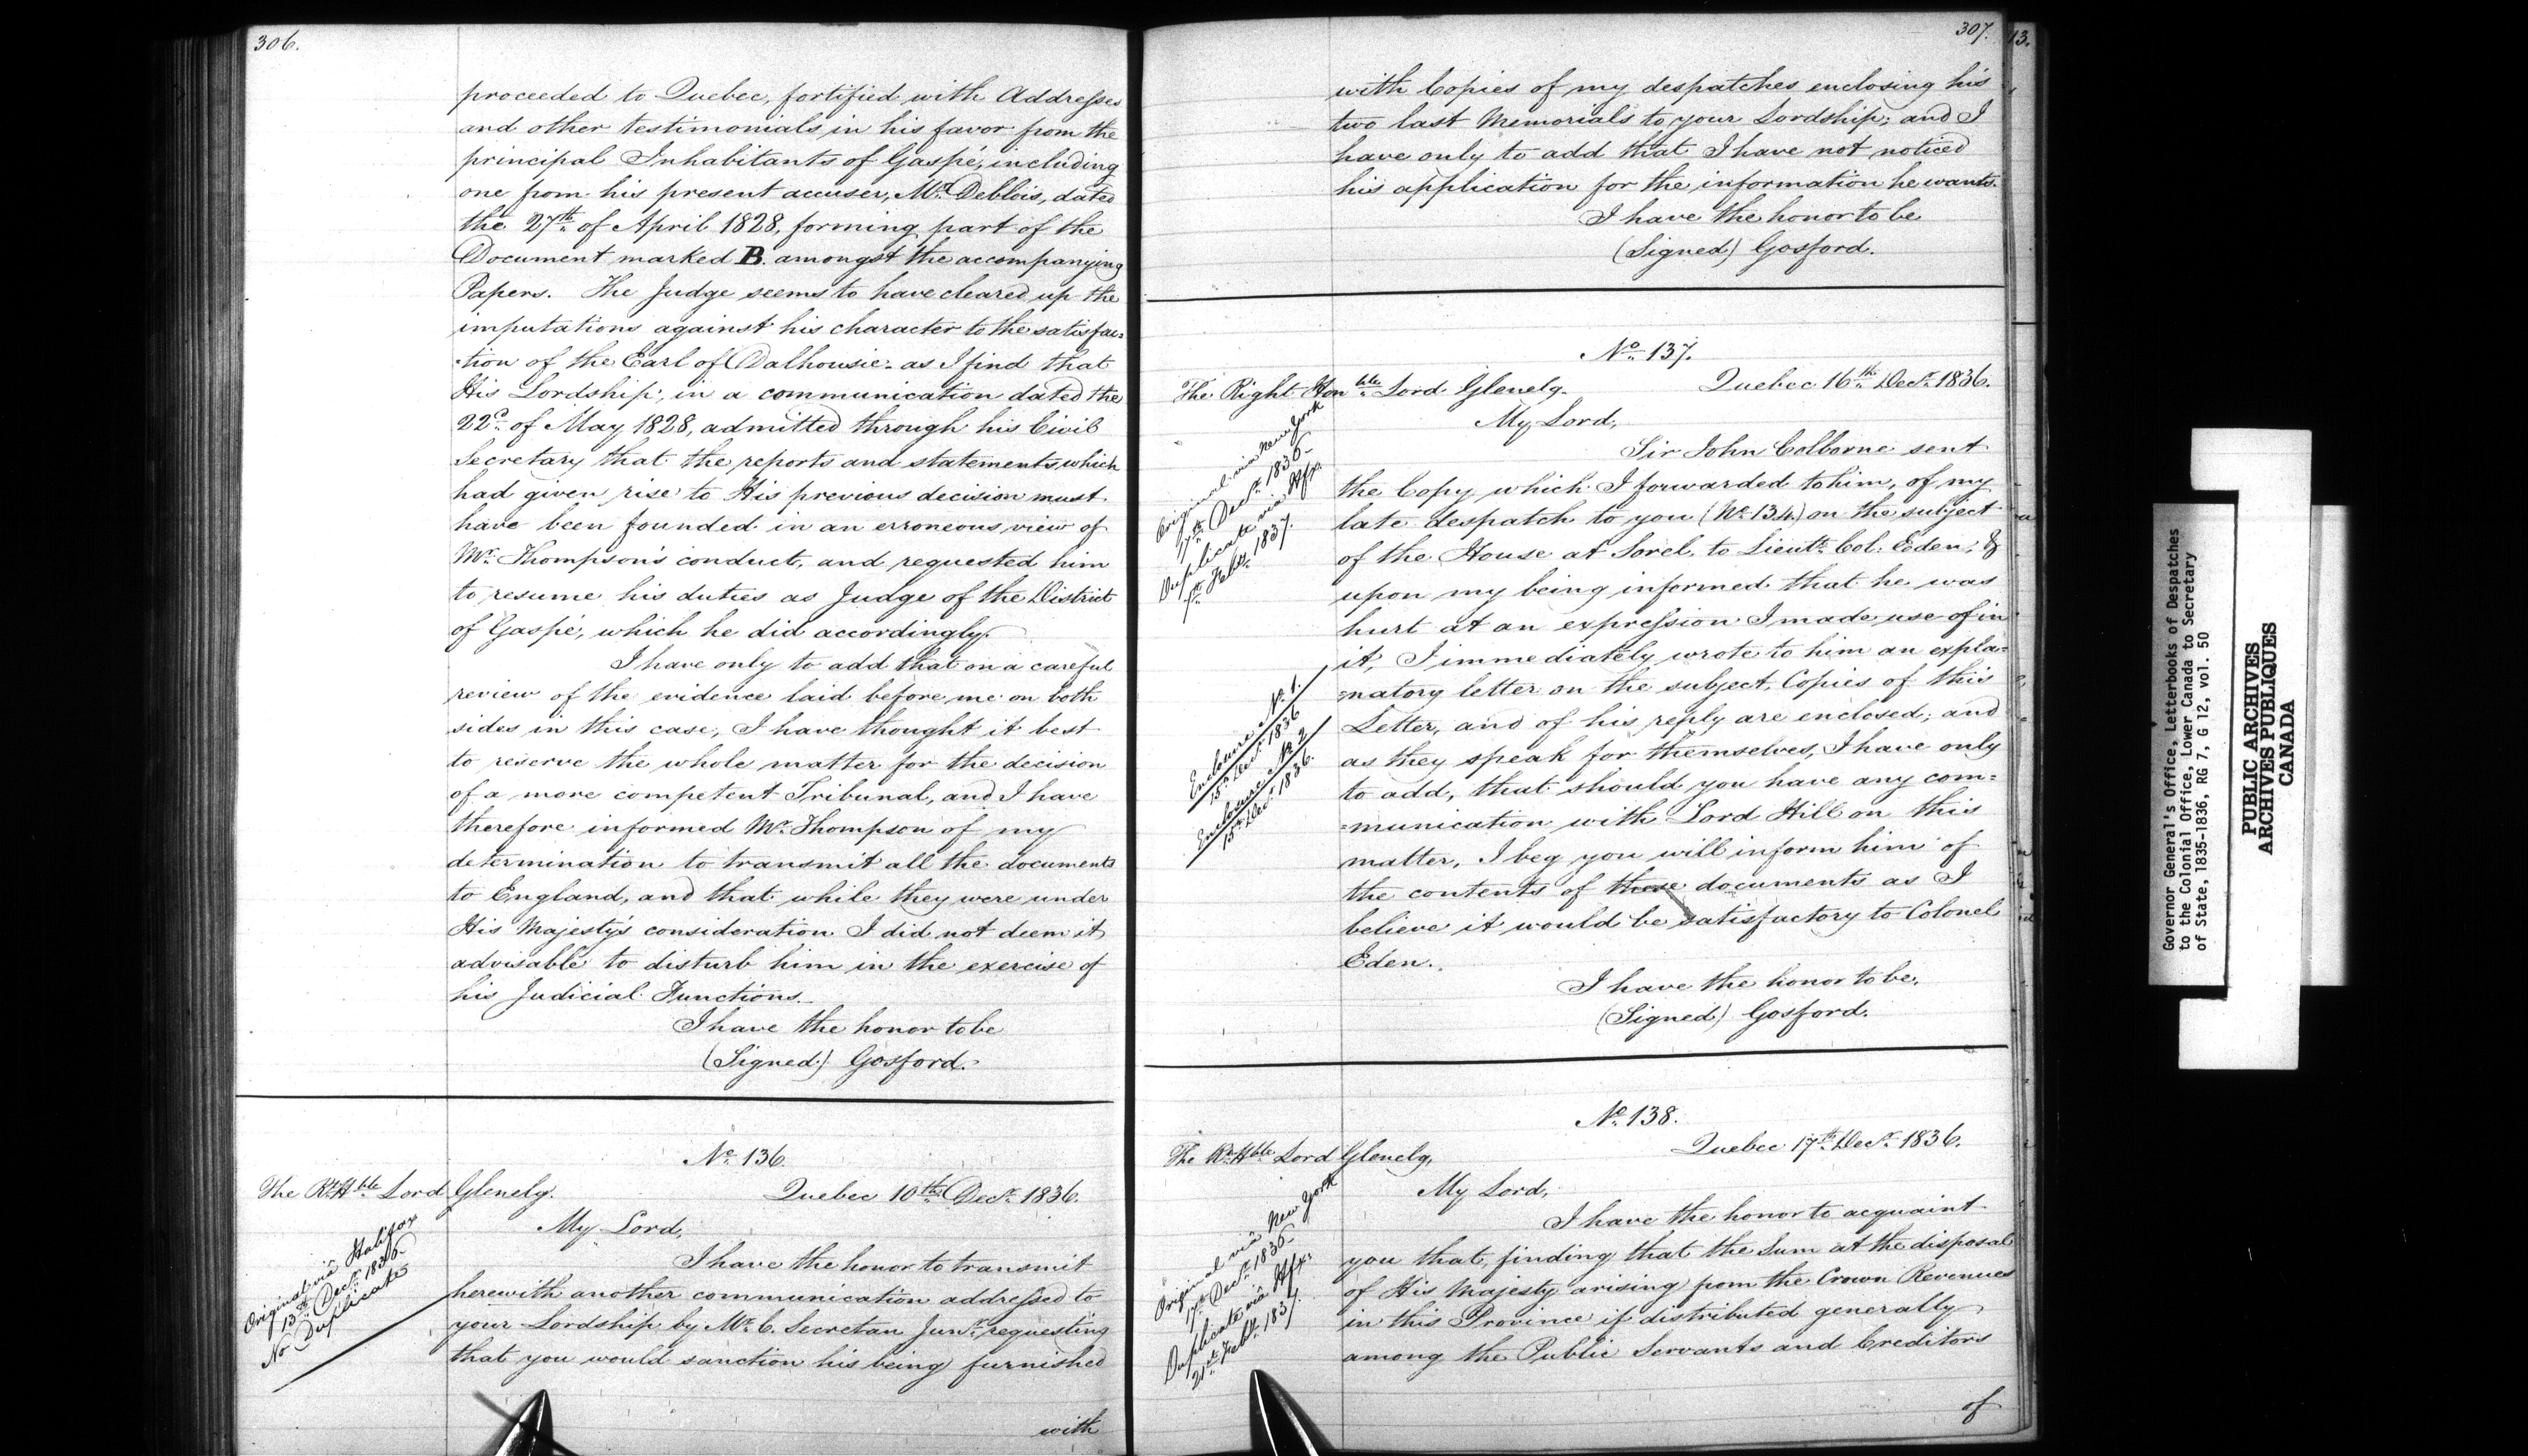 306.
proceeded to Quebec, fortified with Addresses
and other testimonials in his favor from the
principal Inhabitants of Gaspé, including
one from his present accuser, Mr. Deblois, dated
the 27th of April 1828, forming part of the
Document marked B. amongst the accompanying
Papers. The Judge seems to have cleared up the
imputations against his character to the satisfac=
=tion of the Earl of Dalhousie. as I find that
His Lordship, in a communication dated the
22d of May 1828, admitted through his Civil
Secretary that the reports and statements which
had given rise to His previous decision must
have been founded in an erroneous view of
Mr. Thompson's conduct, and requested him
to resume his duties as Judge of the District
of Gaspé, which he did accordingly.
I have only to add that on a careful
review of the evidence laid before me on both
sides in this case, I have thought it best
to reserve the whole matter for the decision
of a more competent Tribunal, and I have
therefore informed Mr. Thompson of my
determination to transmit all the documents
to England, and that while they were under
His Majesty's consideration I did not deem it
advisable to disturb him in the exercise of
his Judicial Functions.
I have the honor to be
(Signed) Gosford.
No. 136.
The Rt. Hble Lord Glenelg. Quebec 10th Decr. 1836.
My Lord,
Original via Halifax
13th Decr. 1836
No Duplicate
I have the honor to transmit
herewith another communication addressed to
your Lordship by Mr. C. Secretan Junr. requesting
that you would sanction his being furnished
with
307.
13.
with Copies of my despatches enclosing his
two last Memorials to your Lordship; and I
have only to add that I have not noticed
his application for the information he wants.
I have the honor to be
(Signed) Gosford.
No. 137.
The Right Honble Lord Glenelg. Quebec 16th Decr. 1836.
My Lord,
Original via New York
17th Decr. 1836
Duplicate via Hfx.
Feby. 1837.
Sir John Colborne sent
the Copy which I forwarded to him, of my
late despatch to you (No. 134) on the subject
of the House at Sorel, to Lieutt. Col. Eden, &
upon my being informed that he was
hurt at an expression I made use of in
it, I immediately wrote to him an expla=
=natory letter on the subject, Copies of this
Letter, and of his reply are enclosed; and
as they speak for themselves, I have only
to add, that should you have any com=
=munication with Lord Hill on this
matter, I beg you will inform him of
the contents of these documents as I
believe it would be satisfactory to Colonel
Eden.
Enclosure No. 1.
15th Decr. 1836
Enclosure No. 2
15th Decr. 1836.
I have the honor to be,
(Signed) Gosford.
No. 138.
The Rt. Hble Lord Glenelg, Quebec 17th Decr. 1836.
My Lord,
Original via New York
17th Decr. 1836
Duplicate via Hfx.
21st Feby. 1837.
I have the honor to acquaint
you that, finding that the Sum at the disposal
of His Majesty arising from the Crown Revenues
in this Province if distributed generally
among the Public Servants and Creditors
of
Governor General's Office, Letterbooks of Despatches
to the Colonial Office, Lower Canada to Secretary
of State, 1835-1836, RG 7, G 12, vol. 50
PUBLIC ARCHIVES
ARCHIVES PUBLIQUES
CANADA